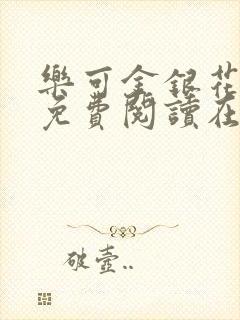 樂可金銀花
免費閱讀在
破壺..